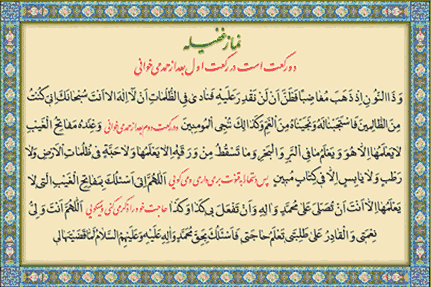 نماز غفیله
دو رکعت است در رکعت اول بعد از حمد می خوانی
وَ ذَا النُّونِ اِذْ ذَهَبَ مُغاضِباً فَظَنَّ اَنْ لَنْ نَقْدِرَ عَلَیْهِ فَنادی فِی الظُّلُماتِ اَنْ لا اِلهَ اِلاّ اَنْتَ سُبْحانَکَ اِنّی کُنْتُ
مِنَ الظّالِمینَ فَاسْتَجَبْنا لَهُ وَ نَجَّیْناهُ مِنَ الْغَمِّ وَ کَذلِکَ نُنْجِی الْمُؤمِنینَ دو رکعت دوم بعد از حمد می خوانی وَ عِنْدَهُ مَفاتِحُ الْغَیْبِ
لا یَعْلَمُها اِلاّ هُوَ وَ یَعْلَمُ ما فِی الْبَرِّ وَ الْبَحْرِ وَ ما تَسْقُطُ مِنْ وَرَقَةٍ اِلاّ یَعْلَمُها وَ لا حَبَّةٍ فی ظُلُماتِ الْاَرْضِ وَ لا
رَطْبٍ وَ لا یابِسٍ اِلاّ فی کِتابٍ مُبینٍ پس دستها به قنوت برمی داری و می گویی اَللّهُمَّ اِنّی اَسْئَلُکَ بِمَفاتِحِ الْغَیْبِ الَّتی لا
یَعْلَمُها اِلاّ اَنْتَ اَنْ تُصَلِّیَ عَلی مُحَمَّدٍ وَ الِهِ وَ اَنْ تَفْعَلَ بی کَذا وَ کَذا حاجت خود را ذکر می کنی و میگویی اَللّهُمَّ اَنْتَ وَلِیُّ
نِعْمَتی وَ الْقادِرُ عَلی طَلِبَتی تَعْلَمُ حاجَتی فَاَسْئَلُکَ بِحَقِّ مُحَمَّدٍ وَ الِهِ عَلَیْهِ وَ عَلَیْهِمُ السَّلامُ لَمّا قَضَیْتَها لی